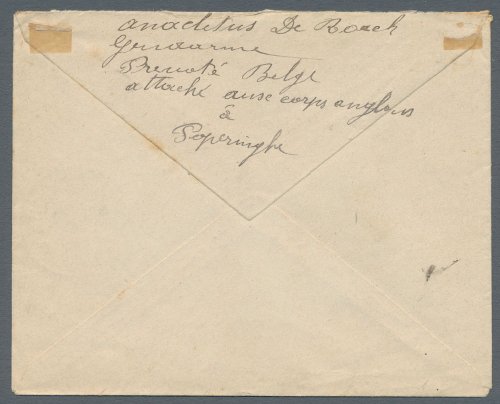 anacletus De Boeck
Gendarme
Prevoté Belge
attaché aux corps anglais
à
Poperinghe